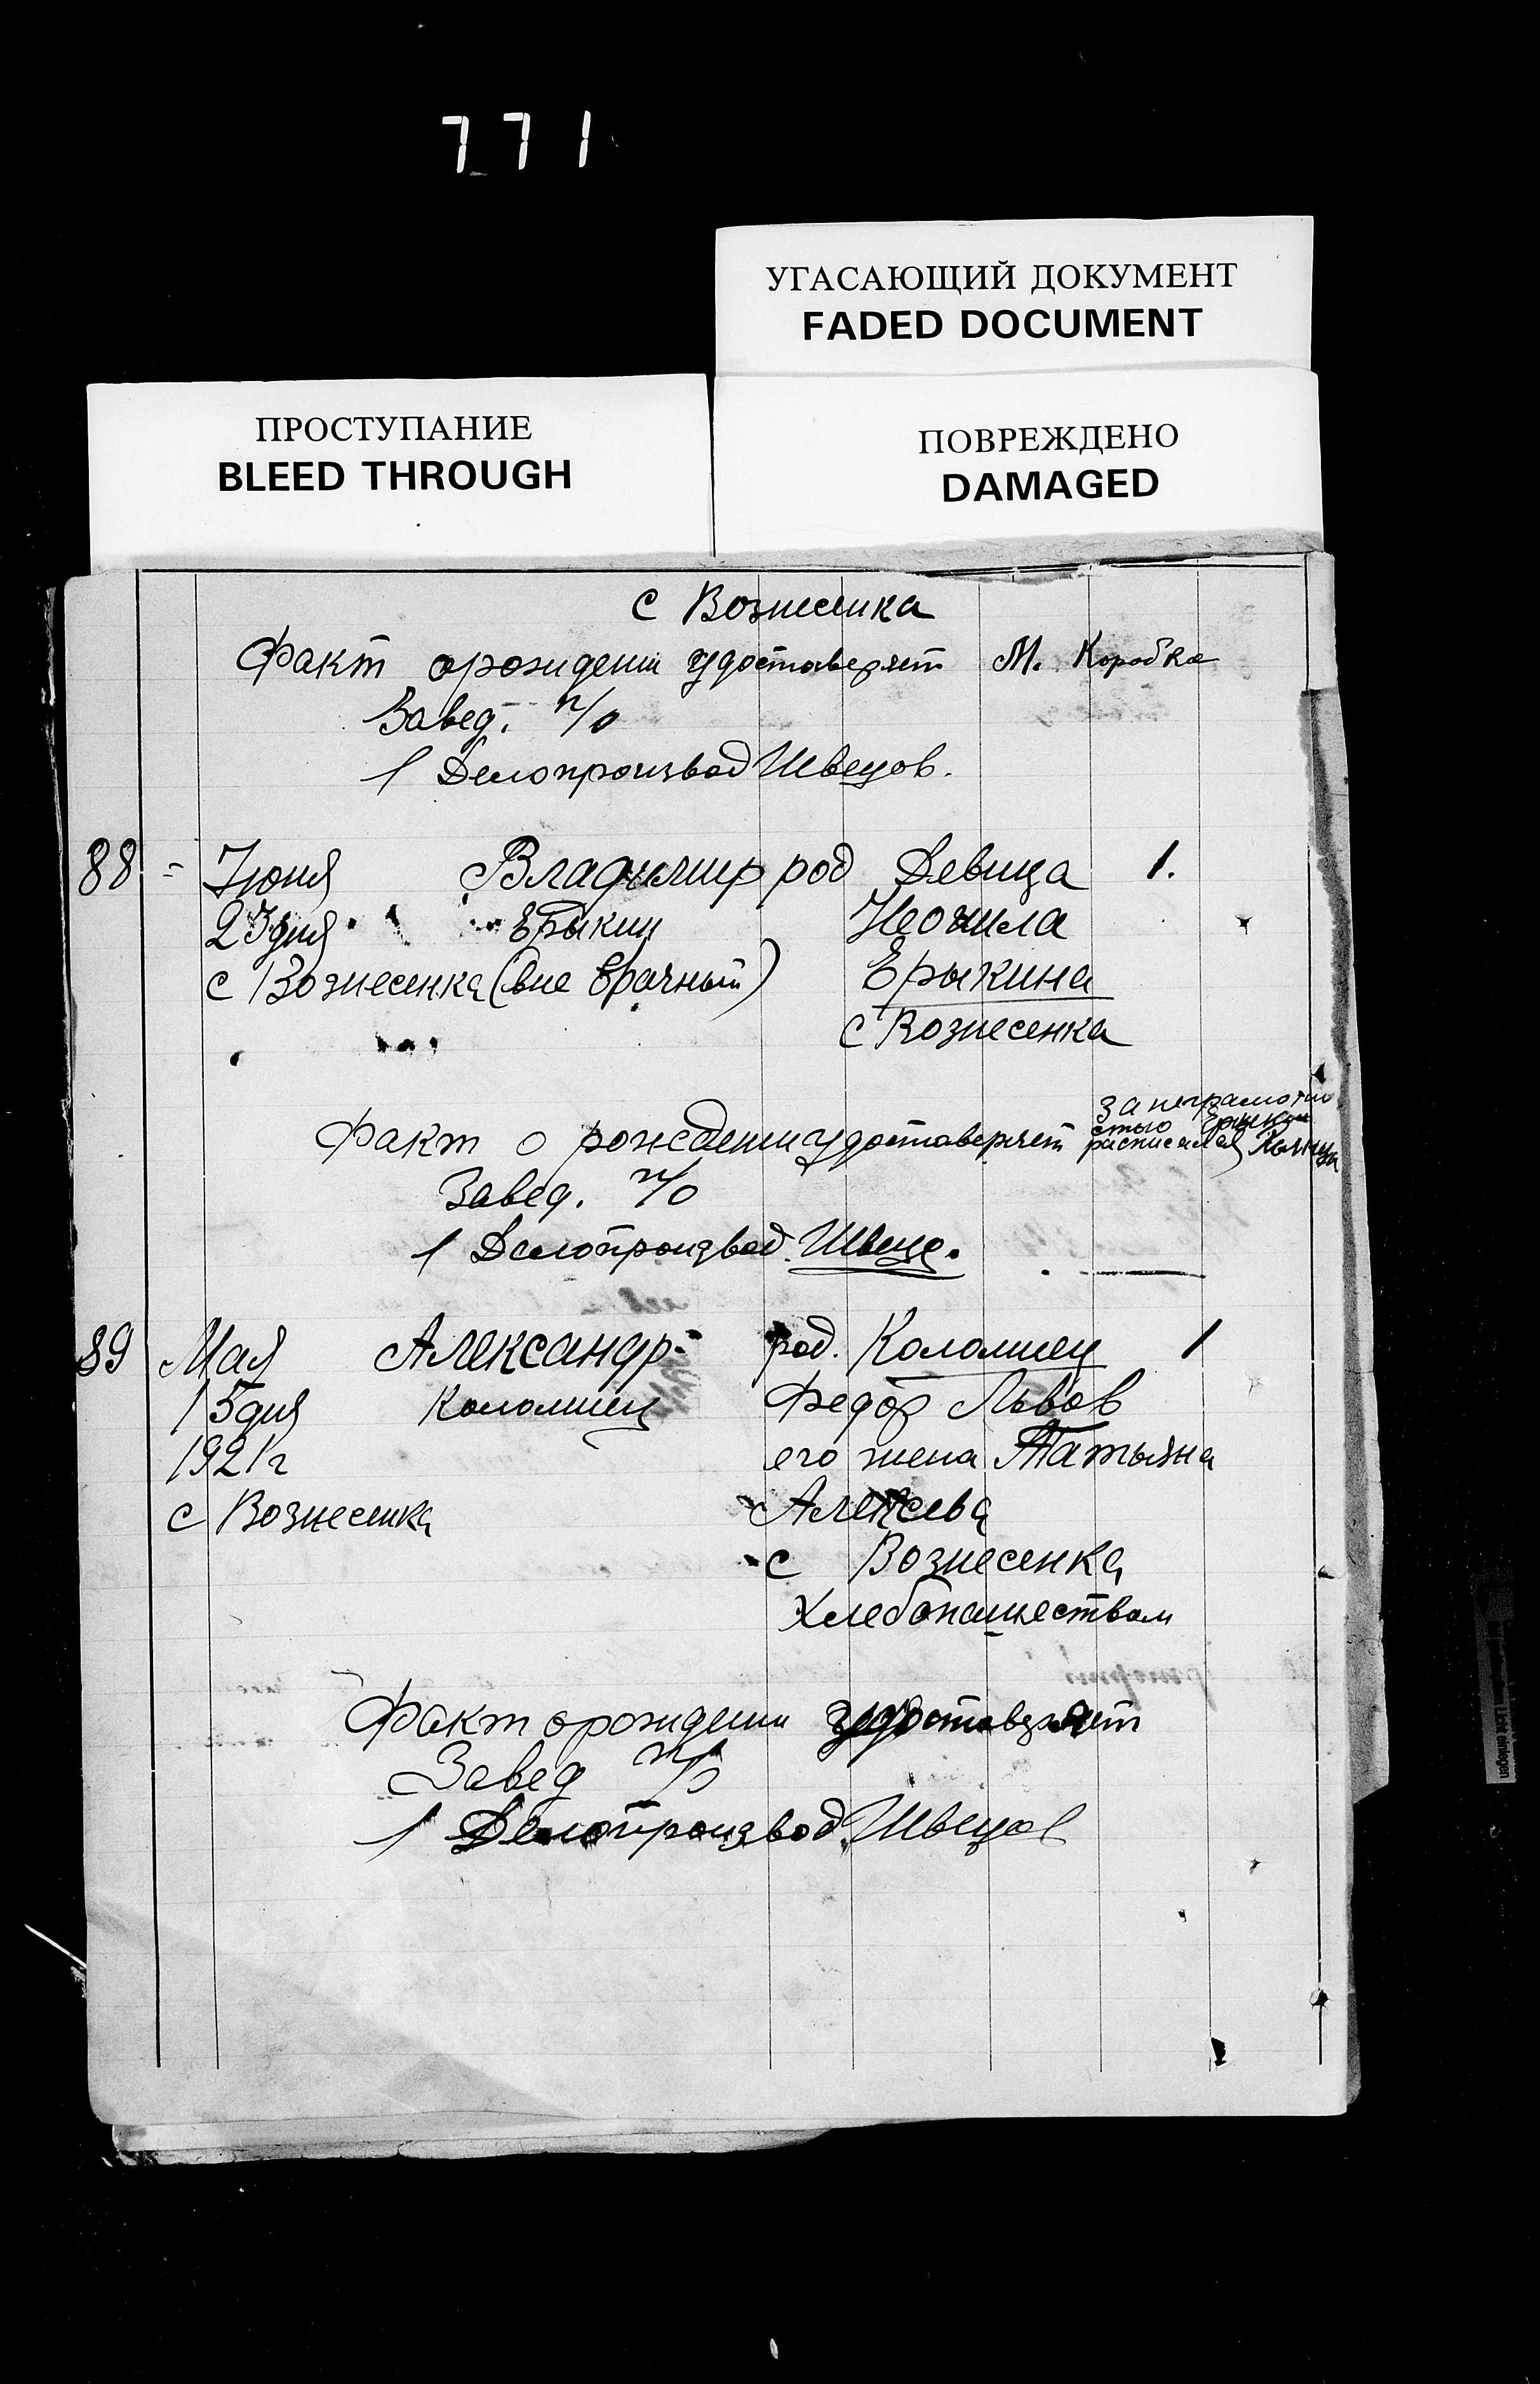 771
УГАСАЮЩИЙ ДОКУМЕНТ
FADED DOCUMENT
ПРОСТУПАНИЕ
BLEED THROUGH
ПОВРЕЖДЕНО
DAMAGED
с Вознесенка
Факт о рождении удостоверяет М. Коробка
Завед. п/о
1 Делопроизвод Швецов.
88 Июня Владимир род Девица 1.
23 дня Ерыкин Неонила
с Вознесенка (вне брачный) Ерыкина
с Вознесенка
за неграмотно
стью Ерыкин
Факт о рождении удостоверяет расписался
Завед. п/о
1 Делопроизвод. Швецо.
89 Мая Александр род. Коломиец 1
15 дня Коломиец Федор Львов
1921 г его жена Татьяна
с Вознесенка Алексева
с Вознесенка
Хлебопашеством
Факт о рождении удостоверяет
Завед п/о
1 Делопроизвод. Швецов